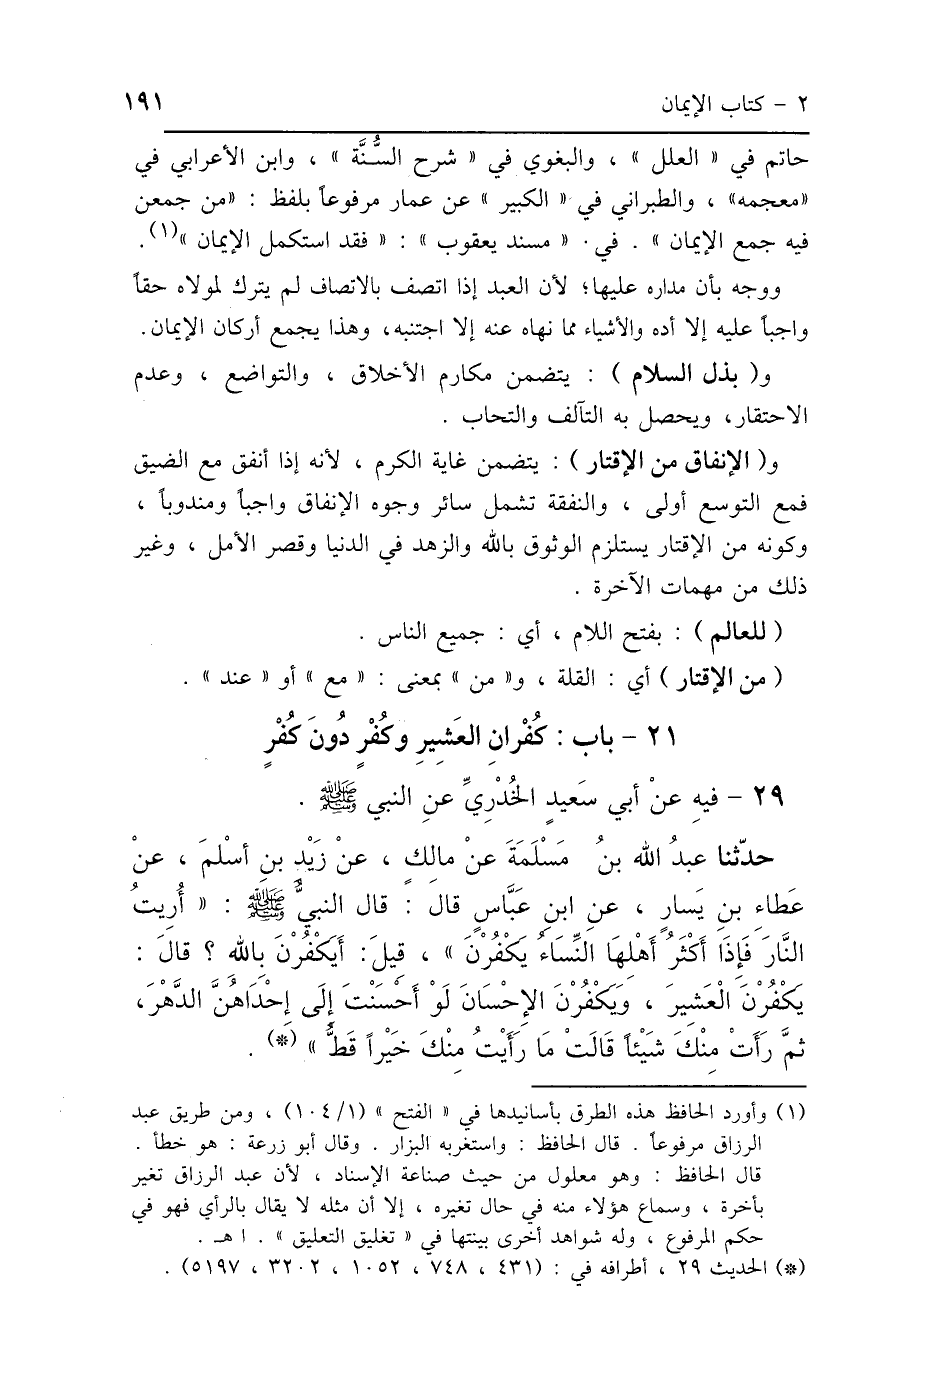 ٢ - كتاب الإيمان ١٩١
حاتم في « العلل » ، والبغوي في « شرح السُّنَّة » ، وابن الأعرابي في
«معجمه» ، والطبراني في « الكبير » عن عمار مرفوعاً بلفظ : «من جمعن
فيه جمع الإيمان » . في « مسند يعقوب » : « فقد استكمل الإيمان »(١).
ووجه بأن مداره عليها؛ لأن العبد إذا اتصف بالاتصاف لم يترك لمولاه حقاً
واجباً عليه إلا أده والأشياء مما نهاه عنه إلا اجتنبه، وهذا يجمع أركان الإيمان.
و( بذل السلام ) : يتضمن مكارم الأخلاق ، والتواضع ، وعدم
الاحتقار، ويحصل به التآلف والتحاب .
و( الإنفاق من الإقتار ) : يتضمن غاية الكرم ، لأنه إذا أنفق مع الضيق
فمع التوسع أولى ، والنفقة تشمل سائر وجوه الإنفاق واجباً ومندوباً ،
وكونه من الإقتار يستلزم الوثوق بالله والزهد في الدنيا وقصر الأمل ، وغير
ذلك من مهمات الآخرة .
( للعالم ) : بفتح اللام ، أي : جميع الناس .
( من الإقتار ) أي : القلة ، و« من » بمعنى : « مع » أو « عند » .
٢١ - باب : كُفْرانِ العَشيرِ وكُفْرٍ دُونَ كُفْرٍ
٢٩ - فيهِ عنْ أبي سَعيدٍ الخُدْرِيِّ عنِ النبي ﷺ .
حدّثنا عبدُ الله بنُ مَسْلَمَةَ عنْ مالكٍ ، عنْ زَيْدِ بنِ أسْلمَ ، عنْ
عَطاءِ بنِ يَسارٍ ، عنِ ابنِ عَبَّاسٍ قال : قال النبيُّ ﷺ : « أُرِيتُ
النَّارَ فَإِذَا أَكْثَرُ أَهْلِهَا النِّسَاءُ يَكْفُرْنَ » ، قيلَ: أيَكْفُرْنَ بِالله ؟ قالَ :
يَكْفُرْنَ الْعَشيرَ ، وَيَكْفُرْنَ الإحْسَانَ لَوْ أحْسَنْتَ إِلَى إحْدَاهُنَّ الدَّهْرَ،
ثمَّ رَأَتْ مِنْكَ شَيْئاً قَالَتْ مَا رَأَيْتُ مِنْكَ خَيْراً قَطُّ » (*) .
(١) وأورد الحافظ هذه الطرق بأسانيدها في « الفتح » (١٠٤/١) ، ومن طريق عبد
الرزاق مرفوعاً . قال الحافظ : واستغربه البزار . وقال أبو زرعة : هو خطأ .
قال الحافظ : وهو معلول من حيث صناعة الإسناد ، لأن عبد الرزاق تغير
بأخرة ، وسماع هؤلاء منه في حال تغيره ، إلا أن مثله لا يقال بالرأي فهو في
حكم المرفوع ، وله شواهد أخرى بينتها في « تغليق التعليق » . ا هـ .
(*) الحديث ٢٩ ، أطرافه في : (٤٣١ ، ٧٤٨ ، ١٠٥٢ ، ٣٢٠٢ ، ٥١٩٧) .